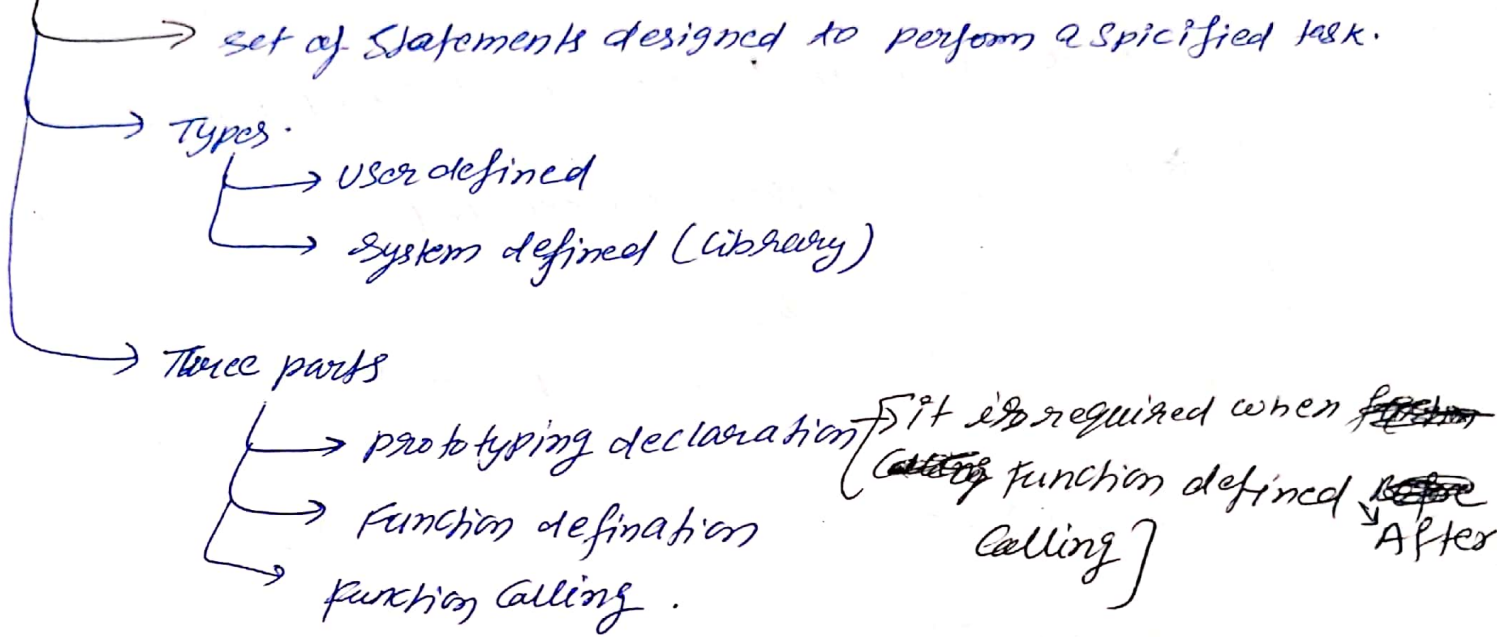 set of Statements designed to perform a spicified task.
Types.
User defined
System defined (Library)
Three parts
prototyping declaration [it is required when
Function defined After
Calling]
Function defination
Function Calling.